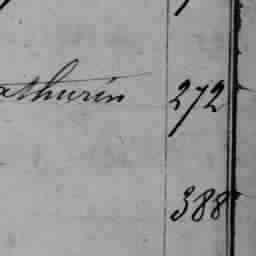 athurin 272
388